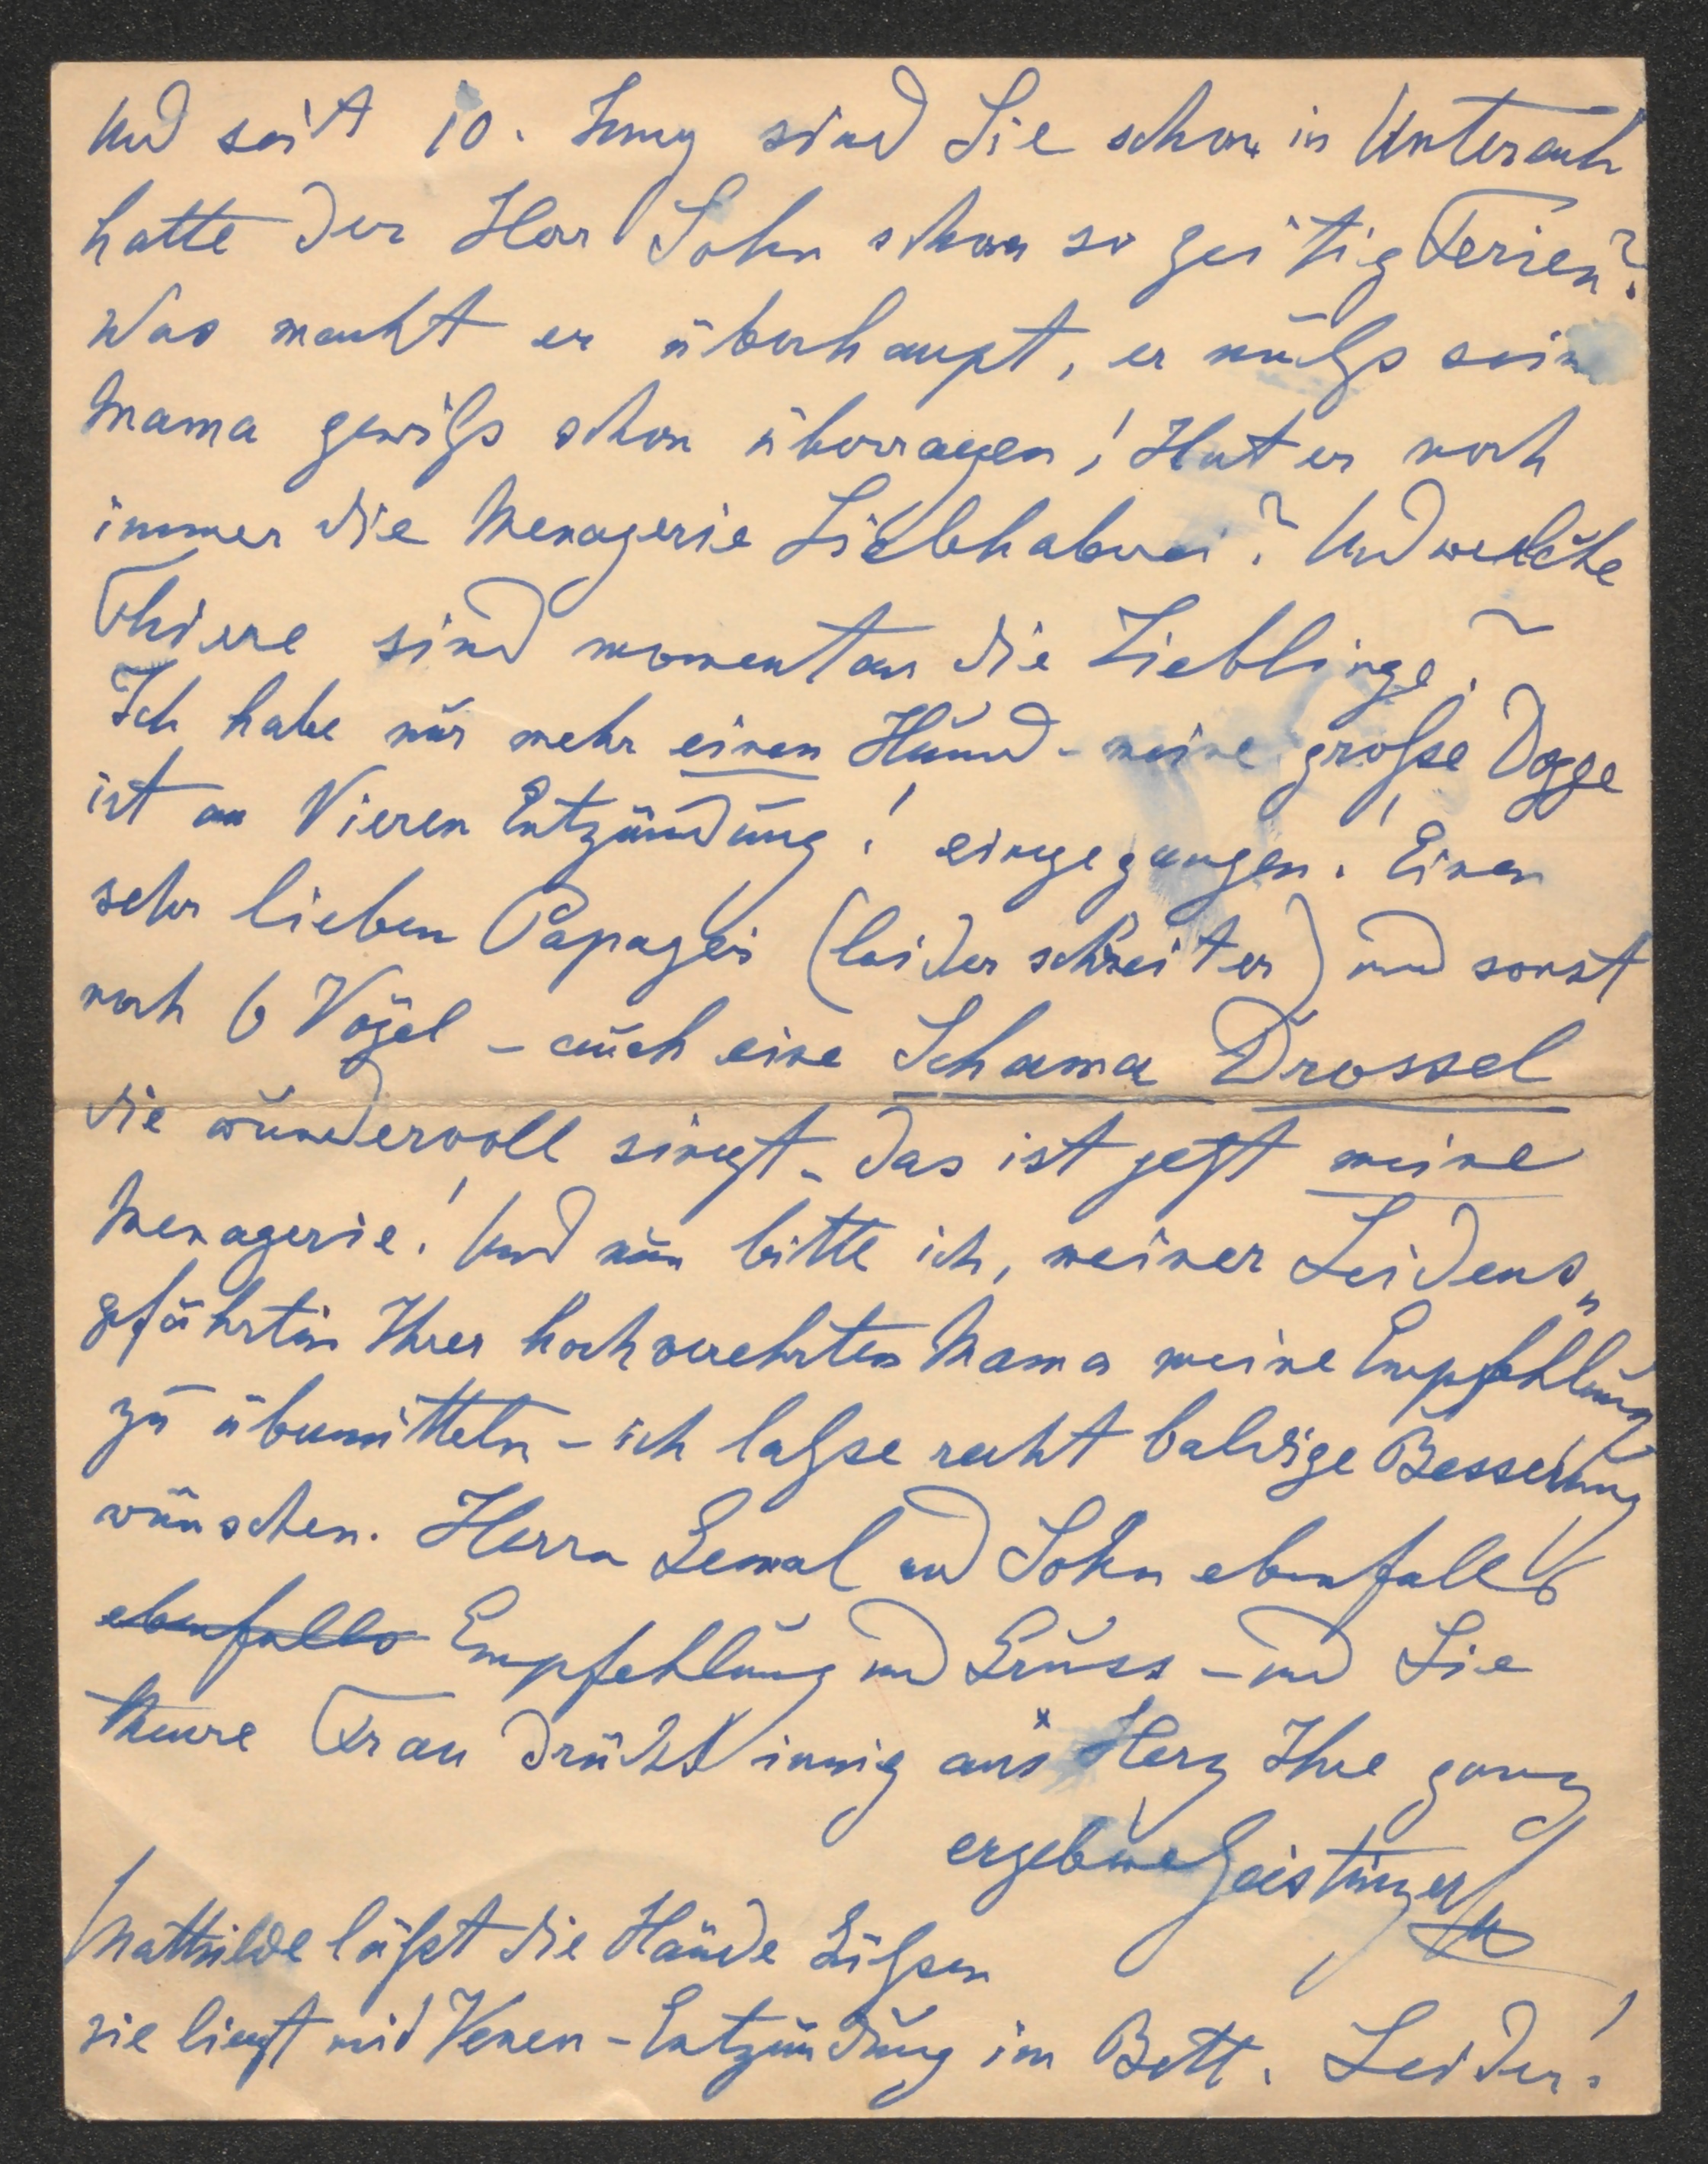 und seit 10. Juny sind Sie schon in Unterach
hatte der Herr Sohn schon so zeitig Ferien?
Was macht er überhaupt, er muß seine
Mama gewiß schon überragen! Hat er noch
immer die Menagerie Liebhaberei? Und welche
Thiere sind momentan die Lieblinge?
Ich habe nur mehr einen Hund – meine große Dogge
ist an Nieren Entzündung! eingegangen! Einen
sehr lieben Papagei (leider schreit er) und sonst
noch 6 Vögel – auch eine Schama Drossel
die wundervoll singt – das ist jetzt meine
Menagerie! Und nun bitte ich, meiner Leidens„
gefährtin Ihrer hochverehrten Mama meine Empfehlung
zu übermitteln – ich laße recht baldige Besserung
wünschen. Herrn Gemal und Sohn ebenfalls
ebenfalls Empfehlung und Gruss – und Sie
theure Frau drückt innig ans Herz Ihre ganz
ergebene Geistinger
Mathilde läßt die Hände küßen
sie liegt mit Venen-Entzündung im Bett. Leider!